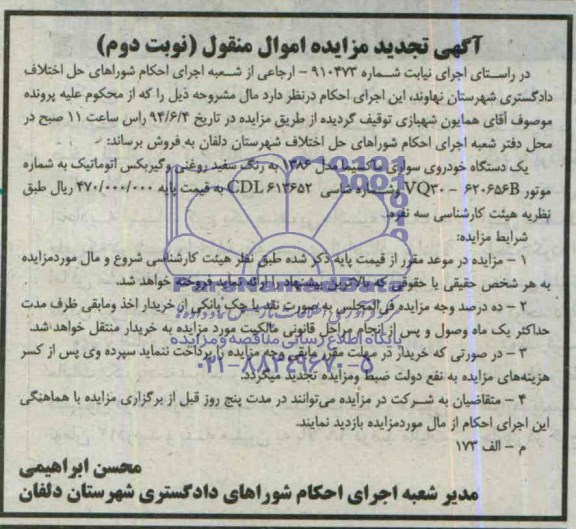 آگهی تجدید مزایده اموال منقول (نوبت دوم)
در راستای اجرای نیابت شماره ۹۱۰۴۷۳ - ارجاعی از شعبه اجرای احکام شوراهای حل اختلاف
دادگستری شهرستان نهاوند، این اجرای احکام درنظر دارد مال مشروحه ذیل را که از محکوم علیه پرونده
موصوف آقای همایون شهبازی توقیف گردیده از طریق مزایده در تاریخ ۹۴/۶/۴ راس ساعت ۱۱ صبح در
محل دفتر شعبه اجرای احکام شوراهای حل اختلاف شهرستان دلفان به فروش برساند:
یک دستگاه خودروی سواری ماکسیما مدل ۱۳۸۶ به رنگ سفید روغنی وگیربکس اتوماتیک به شماره
موتور VQ۳۰ - ۶۲۰۶۵۶B وشماره شاسی CDL ۶۱۳۶۵۲ به قیمت پایه ۴۷۰/۰۰۰/۰۰۰ ریال طبق
نظریه هیئت کارشناسی سه نفره.
شرایط مزایده:
۱ - مزایده در موعد مقرر از قیمت پایه ذکر شده طبق نظر هیئت کارشناسی شروع و مال موردمزایده
به هر شخص حقیقی یا حقوقی که بالاترین پیشنهاد را ارائه نماید فروخته خواهد شد.
۲ - ده درصد وجه مزایده فی‌المجلس به صورت نقد یا چک بانکی از خریدار اخذ ومابقی ظرف مدت
حداکثر یک ماه وصول و پس از انجام مراحل قانونی مالکیت مورد مزایده به خریدار منتقل خواهد شد.
۳ - در صورتی که خریدار در مهلت مقرر مابقی وجه مزایده را پرداخت ننماید سپرده وی پس از کسر
هزینه‌های مزایده به نفع دولت ضبط ومزایده تجدید میگردد.
۴ - متقاضیان به شرکت در مزایده می‌توانند در مدت پنج روز قبل از برگزاری مزایده با هماهنگی
این اجرای احکام از مال موردمزایده بازدید نمایند.
م - الف ۱۷۳
محسن ابراهیمی
مدیر شعبه اجرای احکام شوراهای دادگستری شهرستان دلفان
پایگاه اطلاع رسانی مناقصه و مزایده
۰۲۱-۸۸۳۴۹۶۷۰-۵